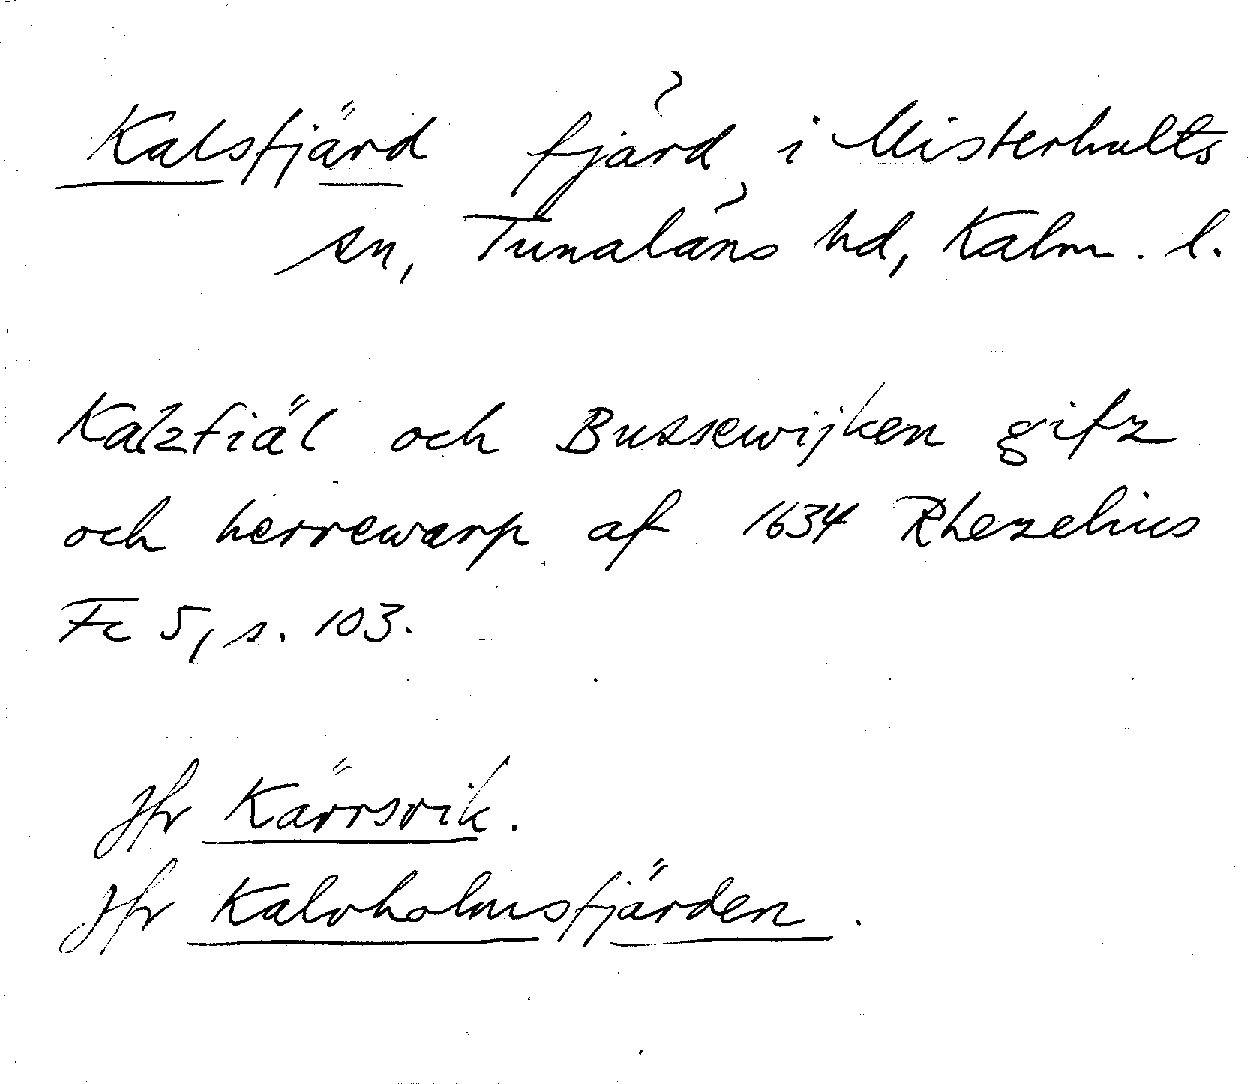 Kalsfjärd fjärd i Misterhults
sn, Tunaläns hd, Kalm. l.
Kalzfiäl och Bussewijken gifz
och herrewarp af 1634 Rhezelius
Fc 5, s. 103.
Jfr Kärrsvik.
Jfr Kalvholmsfjärden.